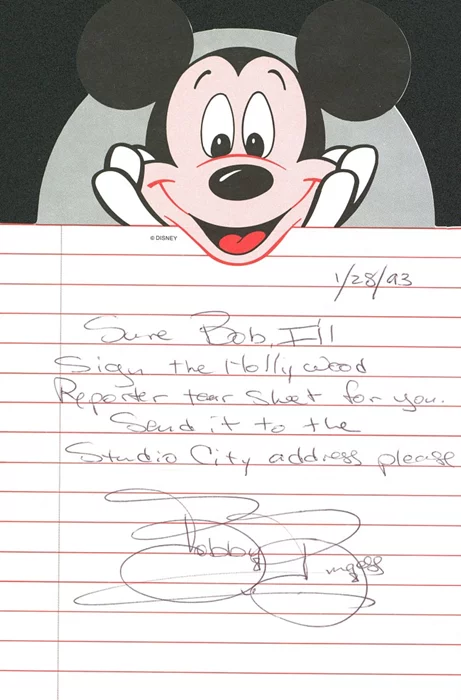 © DISNEY
1/28/93
Sure Bob, I'll
Sign the Hollywood
Reporter tear sheet for you.
Send it to the
Studio City address please
Bobby Burgess